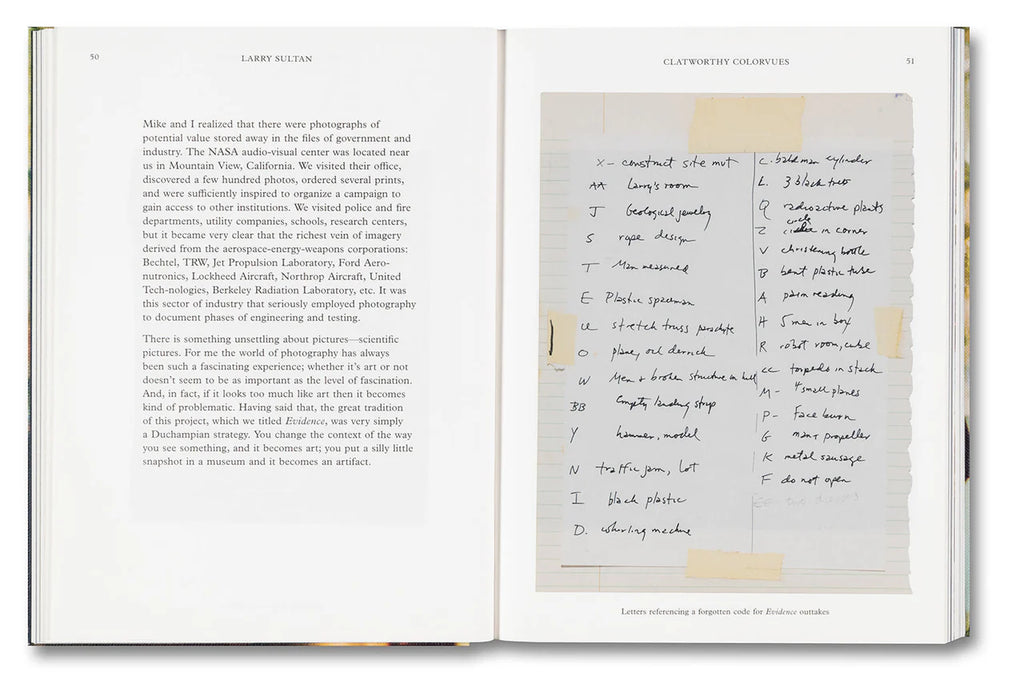 50
LARRY SULTAN
Mike and I realized that there were photographs of
potential value stored away in the files of government and
industry. The NASA audio-visual center was located near
us in Mountain View, California. We visited their office,
discovered a few hundred photos, ordered several prints,
and were sufficiently inspired to organize a campaign to
gain access to other institutions. We visited police and fire
departments, utility companies, schools, research centers,
but it became very clear that the richest vein of imagery
derived from the aerospace-energy-weapons corporations:
Bechtel, TRW, Jet Propulsion Laboratory, Ford Aero-
nutronics, Lockheed Aircraft, Northrop Aircraft, United
Tech-nologies, Berkeley Radiation Laboratory, etc. It was
this sector of industry that seriously employed photography
to document phases of engineering and testing.
There is something unsettling about pictures—scientific
pictures. For me the world of photography has always
been such a fascinating experience; whether it's art or not
doesn't seem to be as important as the level of fascination.
And, in fact, if it looks too much like art then it becomes
kind of problematic. Having said that, the great tradition
of this project, which we titled Evidence, was very simply
a Duchampian strategy. You change the context of the way
you see something, and it becomes art; you put a silly little
snapshot in a museum and it becomes an artifact.
CLATWORTHY COLORVUES
51
X – construct site mut
AA Larry's room
J Geological jewelry
S rope design
T Man measured
E Plastic spaceman
U stretch truss parachute
O plane, oil derrick
W Men & broken structure in
BB Empty landing strip
Y hammer, model
N traffic jam, lot
I black plastic
D. whirling machine
C. bald man cylinder
L. 3 black
Q radioactive plants
Z circle in corner
V christening bottle
B bent plastic tube
A palm reading
H 5 men in box
R robot room, cube
CC torpedo in stack
M – 4 small planes
P – face burn
G man + propeller
K metal sausage
F do not open
EE two
Letters referencing a forgotten code for Evidence outtakes